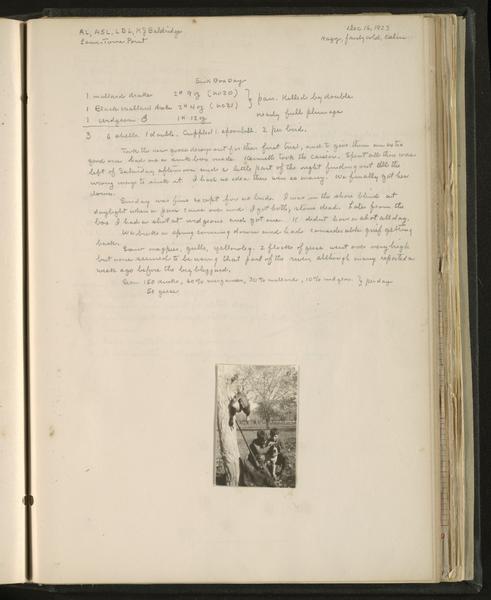 AL, ASL, LBL, KJ Baldridge
Dec 16, 1923
Town Point
Hazy, fairly cold, Calm
Sink Box Day
1 mallard drake 2# 9 oz (
1 Black mallard drake 2# 4 oz (
pair. Killed by double
1 widgeon ♂ 1# 12 oz
nearly full plumage
3 6 shells 1 double. Crippled 1 spoonbill. 2 per bird.
Took the new goose decoys out for their first trial, and to give them an extra
good one had us a sink box made. Kenneth took the canoe. Spent all there was
left of Saturday afternoon and a little part of the night finding out all the
wrong ways to sink it. I had no idea there were so many. We finally got her
down.
Sunday was fine except for no birds. I was in the shore blind at
daylight when a pair came over and I got both, stone dead. Later from the
box I had a shot at widgeons and got one. K didn't have a shot all day.
We broke a spring coming down and had considerable grief getting
back.
Saw magpies, gulls, yellowlegs. 2 flocks of geese went over very high
but none seemed to be using that part of the river although many reported a
week ago before the big blizzard.
Saw 150 ducks, 60% merganser, 30% mallard, 10% widgeon } per day
50 geese